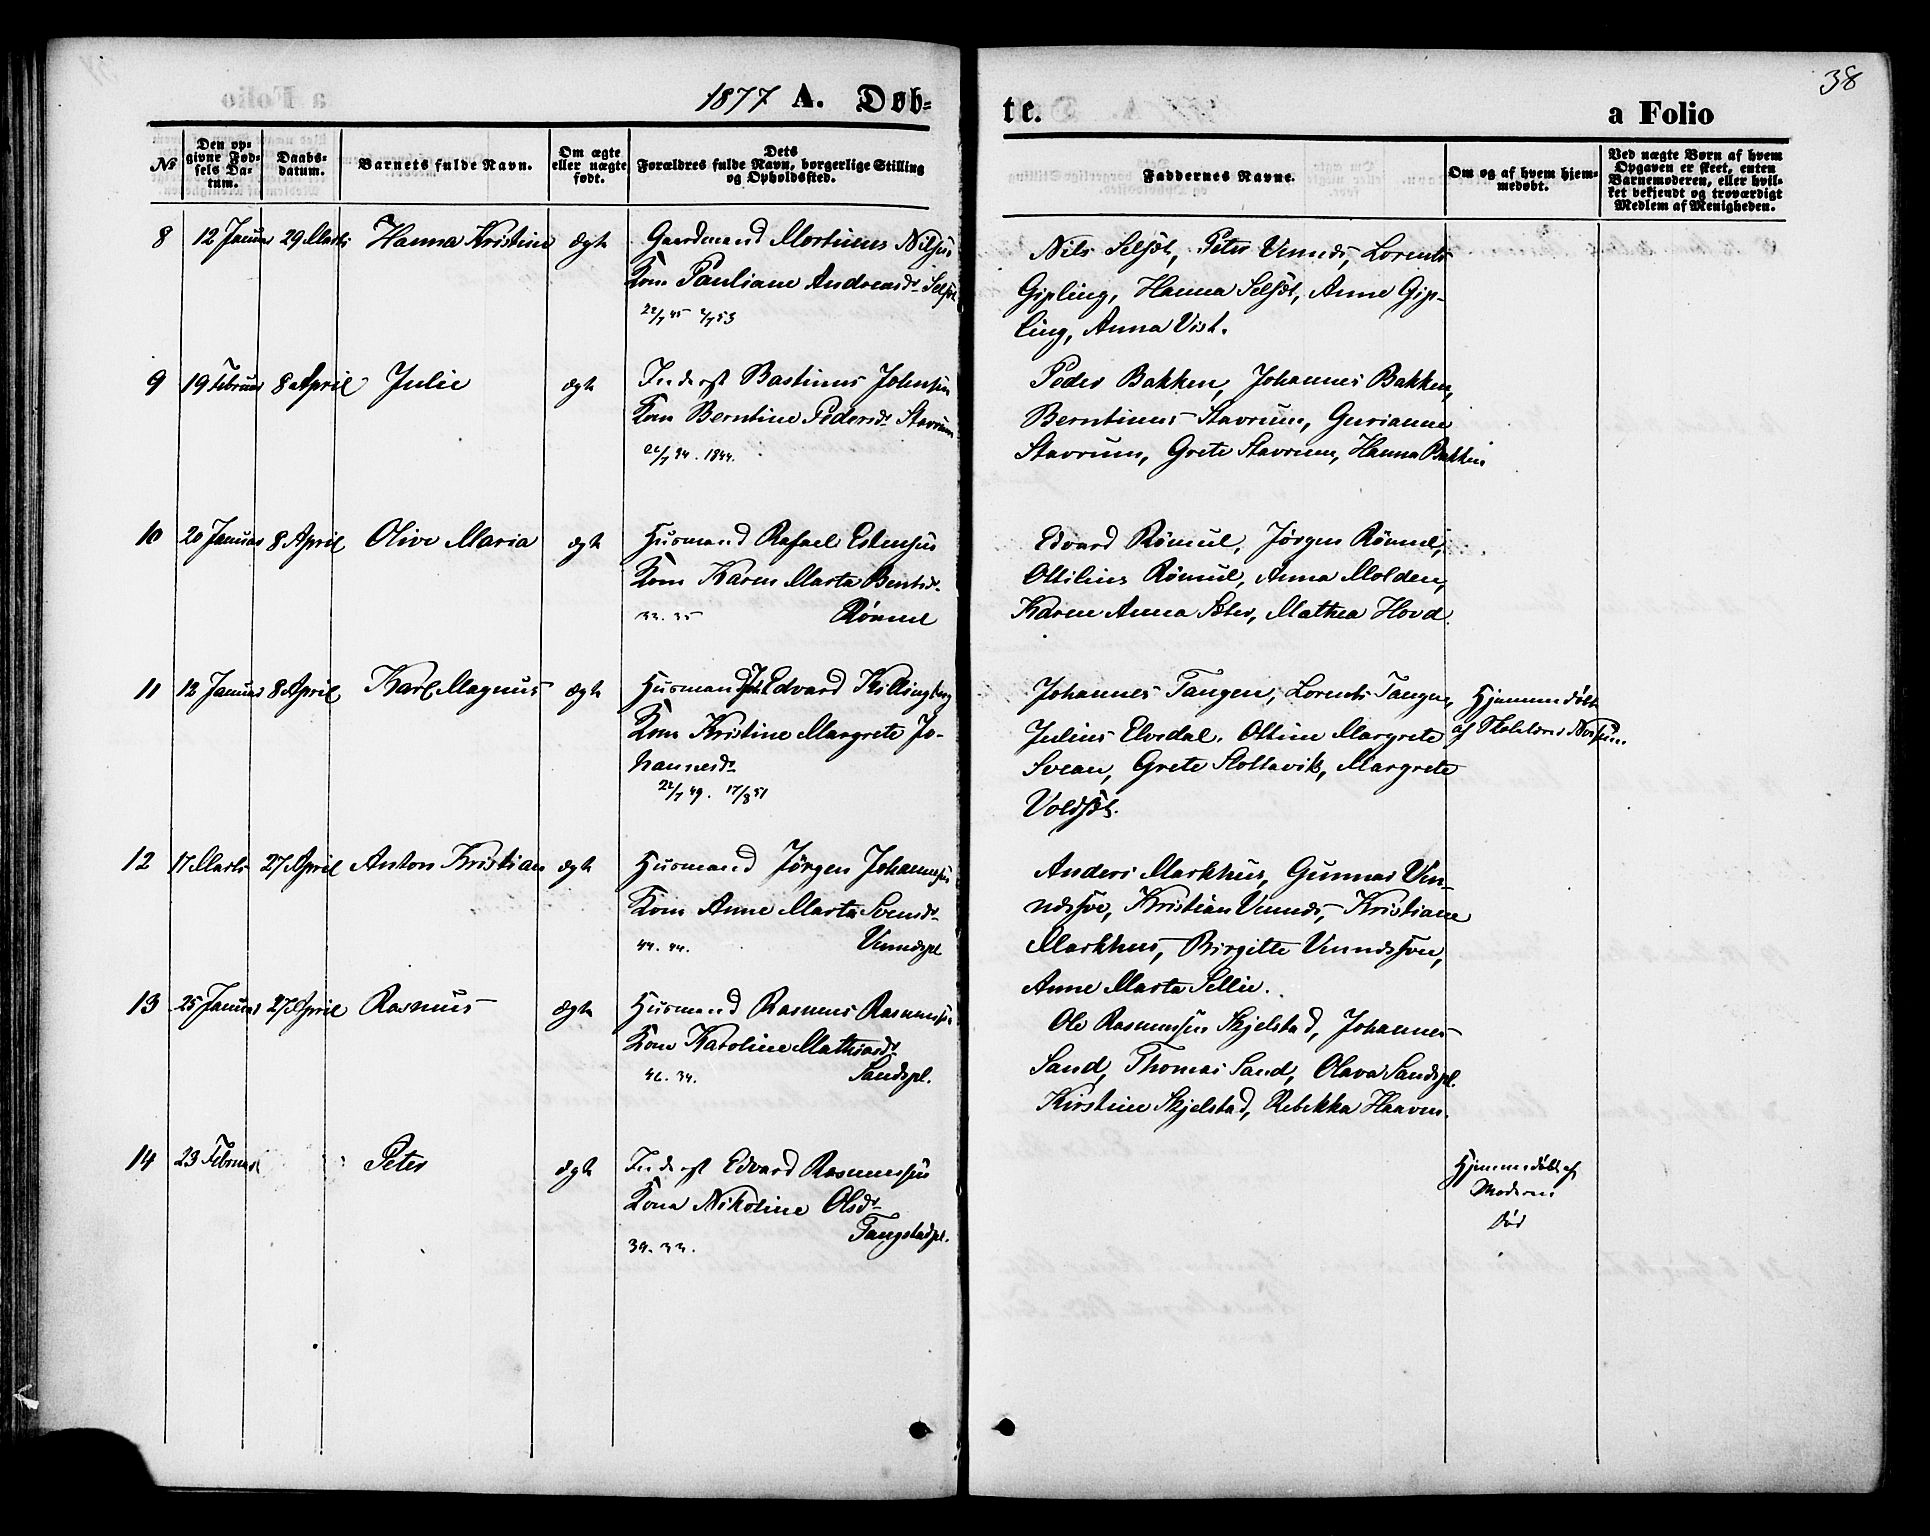 38
1877 A. Døb-
te.
a Folio
No
Den op-
givne Fød-
sels Da-
tum.
Daabs-
datum.
Barnets fulde Navn.
Om ægte
eller uægte
født.
Dets
Forældres fulde Navn, borgerlige Stilling
og Opholdssted.
Faddernes Navne.
Om og af hvem hjem-
medøbt.
Ved uægte Børn af hvem
Opgaven er skeet, enten
Barnemoderen, eller hvil-
ket bekjendt og troværdigt
Medlem af Menigheden.
8 12 Januar 29 Marts Hanna Kristine ægte Gaardmand Martinus Nilsen
Kone Pauliane Andreasdr Selset
22/7 45 2/7 53
Nils Selset, Peter Vennes, Lorents
Gipling, Hanna Selset, Anne Gip-
ling, Anna Vist.
9 19 Februar 8 April Julie ægte Inderst Bastinus Johnsen
Kone Berntine Pedersdr Stavrum
1844.
Peder Bakken, Johannes Bakken,
Berntinus Stavrum, Gurianne
Stavrum, Grete Stavrum, Hanna Bakken
10 20 Januar 8 April Olive Maria ægte Husmand Rafael Estensen
Kone Karen Marta Bentsdr
33. 35 Römul
Edvard Römul, Jörgen Römul,
Ottilius Römul, Anna Molden,
Karen Anna Seter, Mathea Hovd.
11 12 Januar 8 April Karl Magnus ægte Husmand Joh Edvard Killingberg
Kone Kristine Margrete Jo-
hannesdr
22/7 49. 17/8 51
Johannes Tangen, Lorents Tangen,
Julius Elvedal, Ottine Margrete
Svean, Grete Slottavik, Margrete
Voldset.
Hjemmedøbt
af
12 17 Marts 27 April Anton Kristian ægte Husmand Jörgen Johannesen
Kone Anne Marta Svendsdr
44. 44. Vennespl
Anders Markhus, Gunnar Ven-
nesson, Kristian Vennes, Kristiane
Markhus, Birgitte Vennesson,
Anne Marta Sellie.
13 25 Januar 27 April Rasmus ægte Husmand Rasmus Rasmussen
Kone Karoline Mathiasdr
46. 34. Sandspl.
Ole Rasmussen Skjelstad, Johannes
Sand, Thomas Sand, Olava Sandspl.
Kirstine Skjelstad, Rebekka Haaven.
14 23 Februar Peter ægte Inderst Edvard Rasmussen
Kone Nikoline Olsdr
34. 33. Tangstadpl.
Hjemmedøbt af
Moderen
død